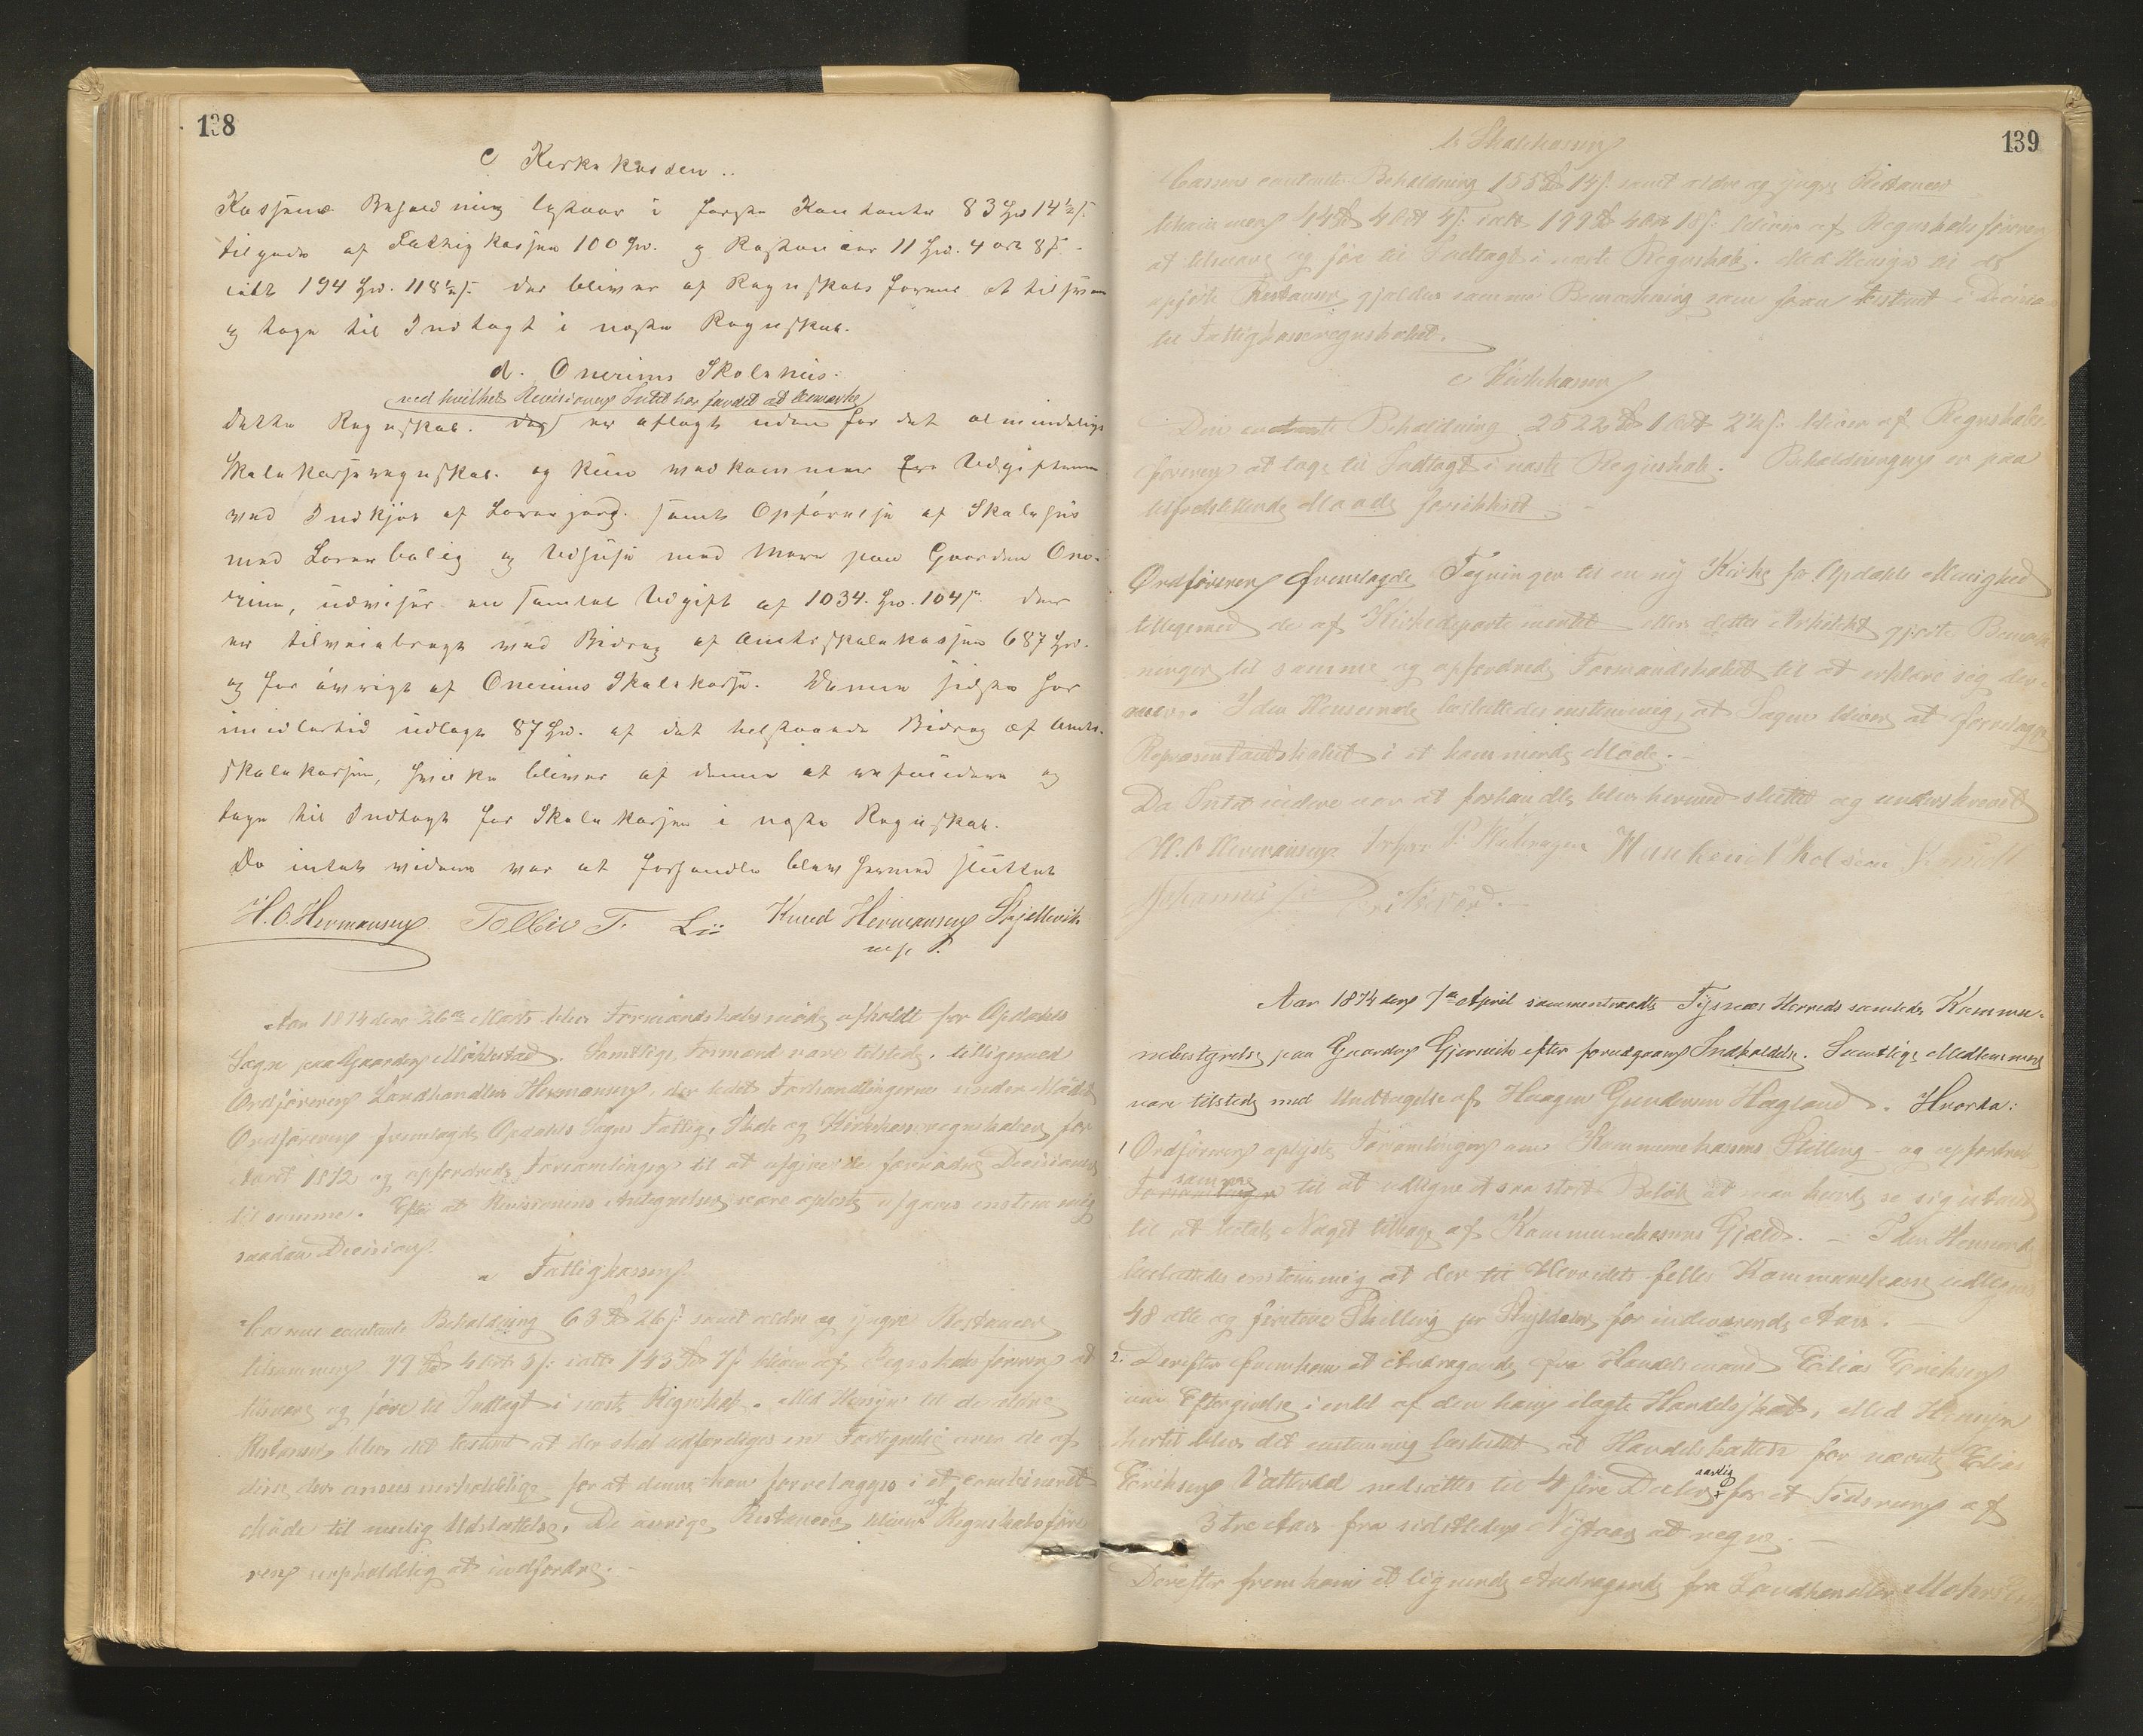 138
c Kirkekassen
Kassens Beholdning bestaar i første Kontanter 83 Spd 14½ s.
tilgode af Fattigkassen 100 Spd. og Restancer 11 Spd. 4 ort 8 s.
ialt 194 Spd. 118½ s. der bliver af Regnskabsføreren at tilsvare
og tage til Indtægt i næste Regnskab.
d. Onerims Skolehus.
ved hvilket Revisionen Intet har fundet at bemærke
Dette Regnskab. der er aflagt uden for det almindelige
Skolekasseregnskab. og kun vedkommer Udgifterne
ved Indkjøb af Lærerjord. samt Opførelse af Skolehus
med Lærerbolig og Udhuse med Mere paa Gaarden One-
rim, udviser en samlet Udgift af 1034. Spd. 104 s. der
er tilveiebragt ved Bidrag af Amtsskolekassen 687 Spd.
og for øvrigt af Onerims Skolekasse. Denne sidste har
imidlertid udlagt 87 Spd. af det tilstaaede Bidrag af Amts-
skolekassen, hvilke bliver af denne at refundere og
tage til Indtægt for Skolekassen i næste Regnskab.
Da intet videre var at forhandle blev hermed sluttet
H. O. Hermansen Tollev T. Lii Knud Hermansen Skjellevik
m. f. P.
Aar 1874 den 26de Marts blev Formandskabsmøde afholdt for Opdahls
Sogn paa Gaarden Møhlestad. Samtlige Formænd vare tilstede, tilligemed
Ordføreren Landhandler Hermansen, der ledet Forhandlingerne under Mødet
Ordføreren fremlagde Opdahls Sogns Fattig, Skole og Kirkekasseregnskaber for
Aaret 1872 og opfordrede Forsamlingen til at afgive de fornødne Decisioner
til samme. Efter at Revisionens Antegnelser vare oplæste afgaves enstemmig
saadan Decision.
a Fattigkassen
Cassens contante Beholdning 63 Spd 26 s. samt ældre og yngre Restancer
tilsammen 79 Spd 4 Ort 5 s. ialt 143 Spd 7 s. bliver af Regnskabsføreren at
tilsvare og føre til Indtægt i næste Regnskab. Med Hensyn til de ældre
Restancer blev det bestemt at der skal udfærdiges en Fortegnelse over de af
disse der ansees uerholdelige for at denne kan forrelægges i et combineret
Møde til muelig Udslettelse. De øvrige Restancer bliver af Regnskabsføre
ren uopholdelig at indfordre.
139
b. Skolekassen
Cassens contante Beholdning 155 Spd 14 s. samt ældre og yngre Restancer
tilsammen 44 Spd 4 Ort 4 s. ialt 199 Spd 4 Ort 18 s. bliver af Regnskabsføreren
at tilsvare og føre til Indtægt i næste Regnskab. Med Hensyn til de
opførte Restancer gjælder samme Bemærkning som foran bestemt i Decision
til Fattigkasseregnskabet.
c Kirkekassen
Den contante Beholdning 2522 Spd 1 Ort 2½ s. bliver af Regnskabs-
føreren at tage til Indtægt i næste Regnskab. Beholdningen er paa
tilfredstillende Maade forsikkret
Ordføreren fremlagde Tegninger til en ny Kirke for Opdahls Menighed
tilligemed de af Kirkedepartementet eller dettes Arkitekt gjorte Bemærk
ninger til samme og opfordrede Formandskabet til at erklære sig der-
over. I den Henseende besluttedes enstemmig, at Sagen bliver at forrelægge
Repræsentantskabet i et kommende Møde.
Da Intet videre var at forhandle blev hermed sluttet og underskrevet
H. O. Hermansen
Johannes
Aar 1874 den 7de April sammentraadte Tysnæs Herreds samlede Kommu-
nebestyrelse paa Gaarden Gjersvik efter forudgaaende Indkaldelse. Samtlige Medlemmer
vare tilstede med Undtagelse af Haagen Gundersen Hægland. Hvorda:
1 Ordføreren oplyste Forsamlingen om Kommunekassens Stilling og opfordrede
samme
Forsamlingen til at udligne et saa stort Beløb at man kunde se sig istand
til at betale Noget tilbage af Kommunekassens Gjæld. I den Henseende
besluttedes enstemmig at der til Herredets felles Kommunekasse udlignes
48 otte og firetive Skilling pr Skylddaler for indeværende Aar.
2. Derefter fremkom et Andragende fra Handelsmand Elias Eriksen
um Eftergivelse i endel af den ham ilagte Handelsskat, Med Hensyn
hertil blev det enstemmig besluttet at Handelsskatten for nævnte Elias
Eriksen Vattvad nedsættes til 4 fire Daler aarlig for et Tidsrum af
3 tre Aar fra sidstleden Nytaar at regne.
Derefter fremkom et lignende Andragende fra Landhandler Mohn